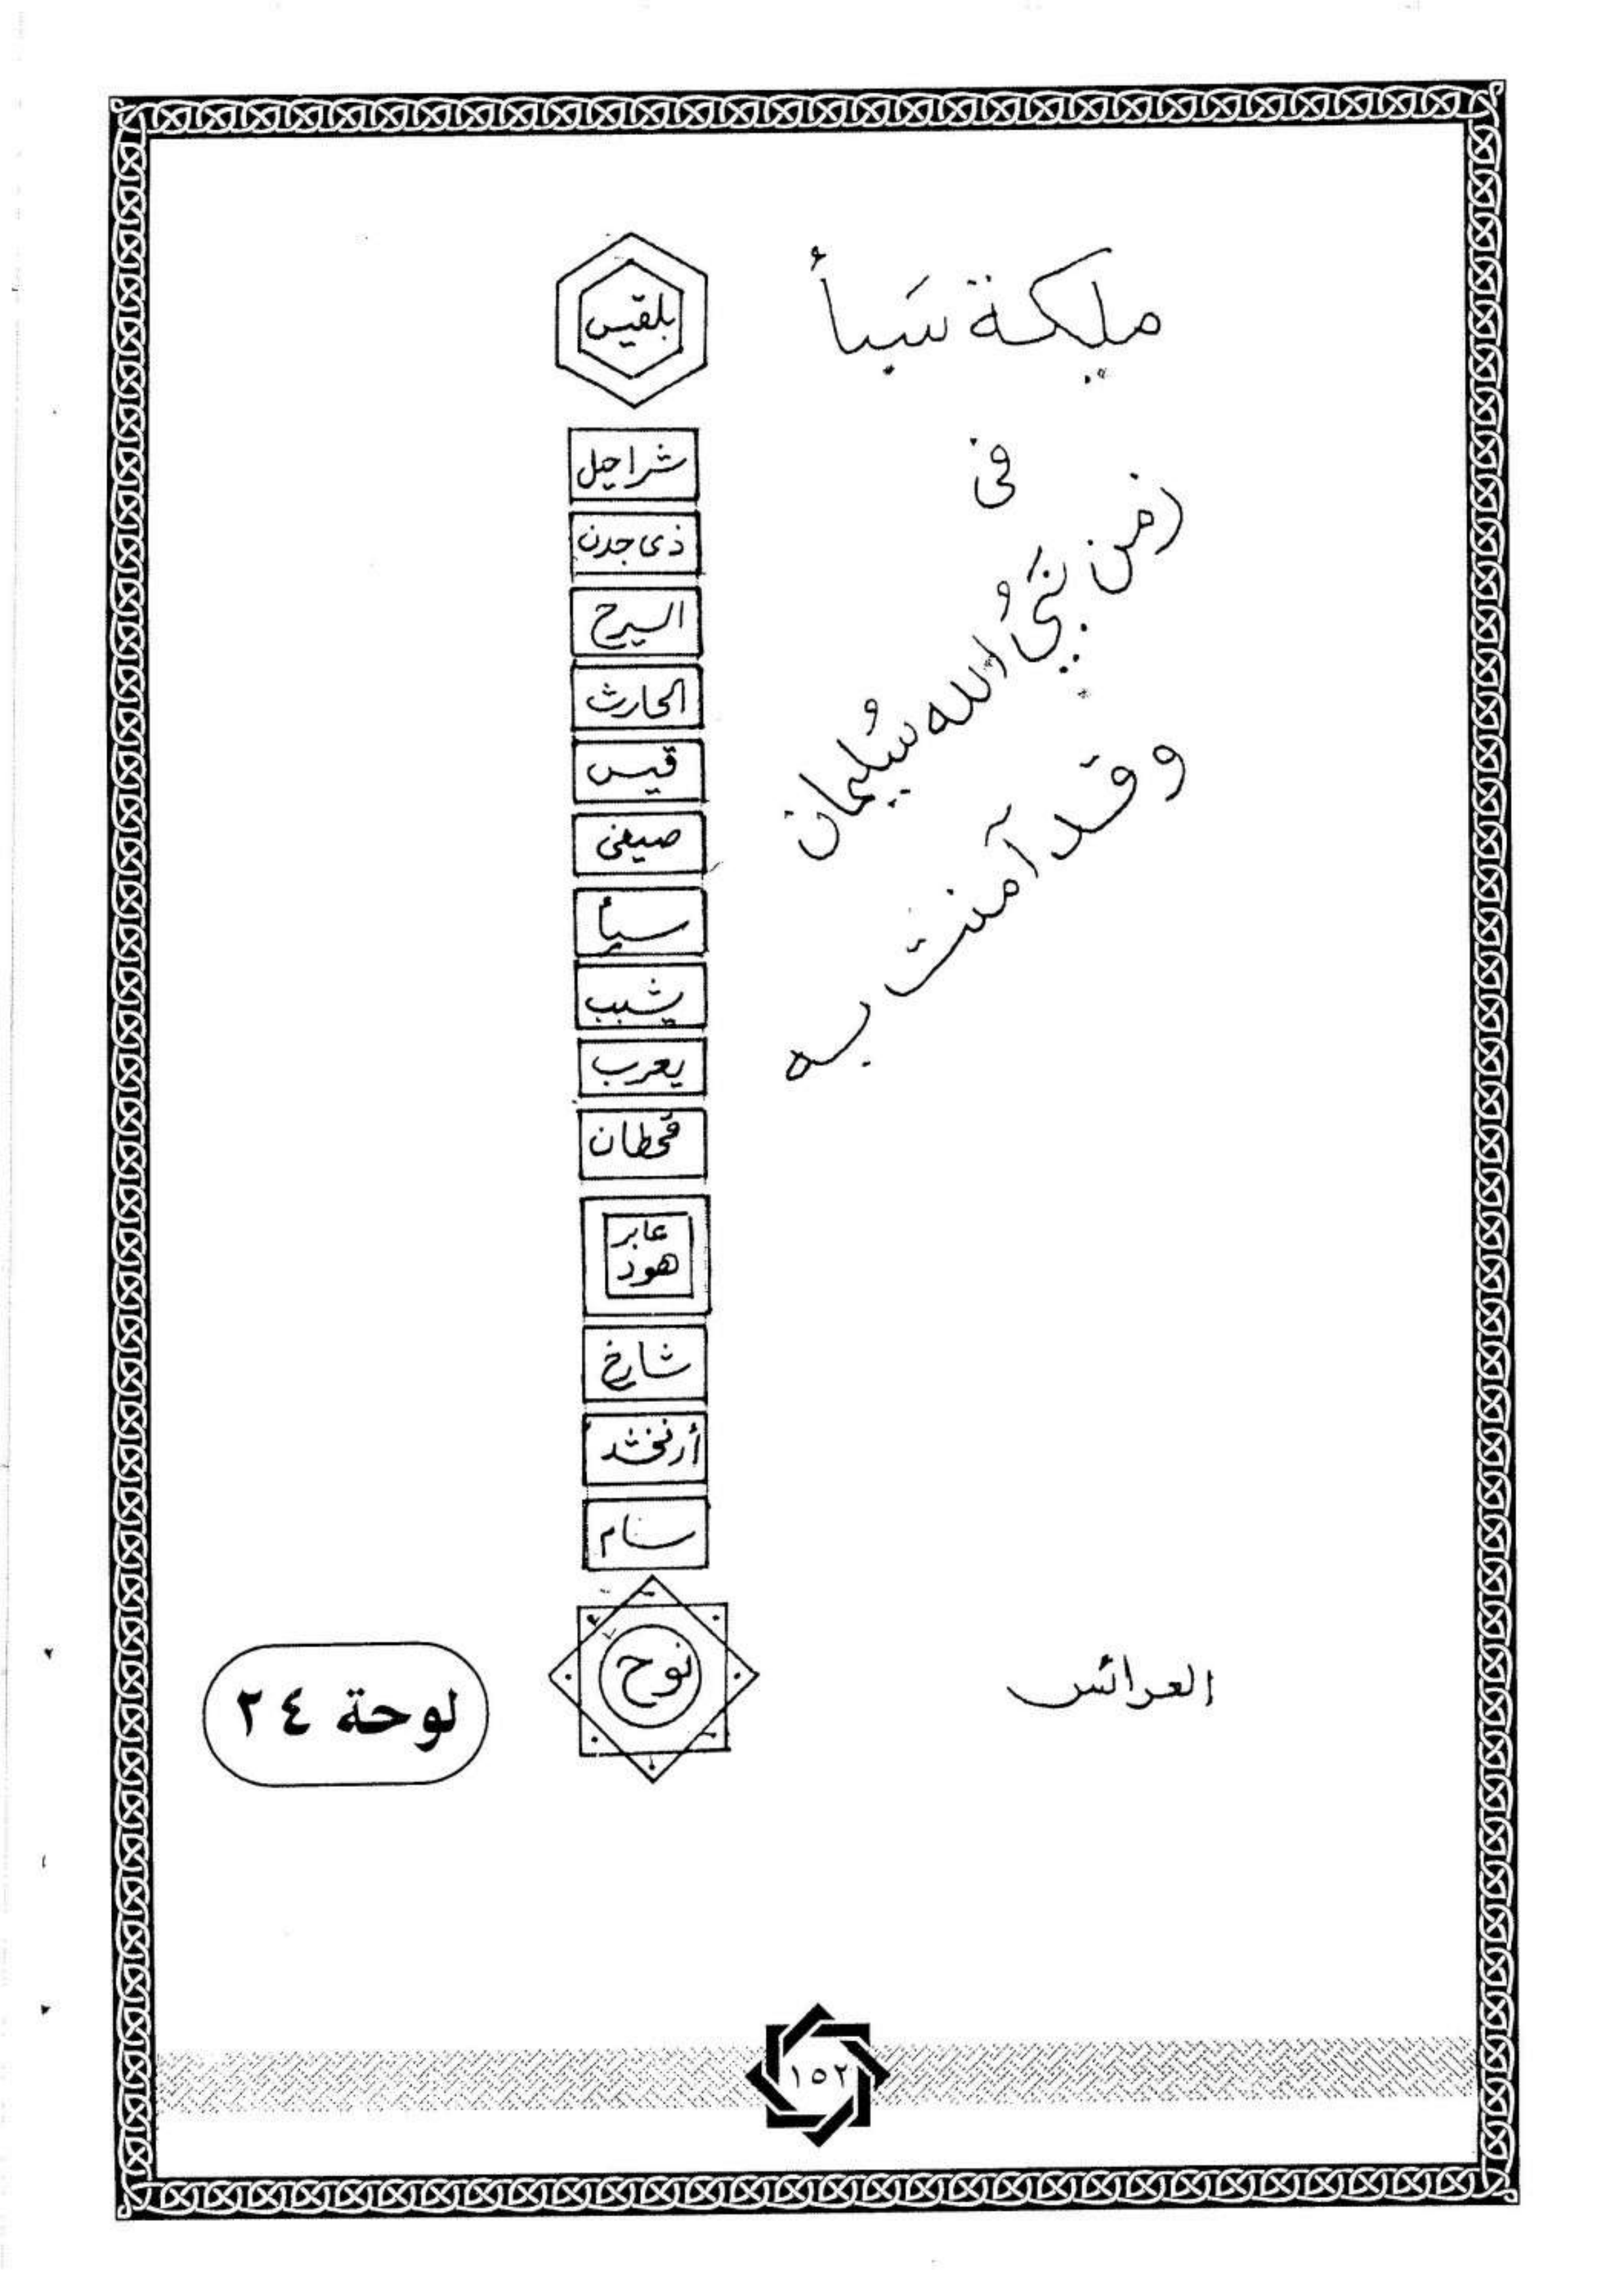 ملكية سَبأ
فى
زمن نَبىُّ الله سُليمان
وقد آمنت به
بلقيس
شراحيل
ذى جدن
السيرح
الحارث
قيس
صيفى
سبأ
يشبب
يعرب
قحطان
عابر
هود
شارخ
أرفخشد
سام
نوح
العرائس
لوحة ٢٤
١٥٢